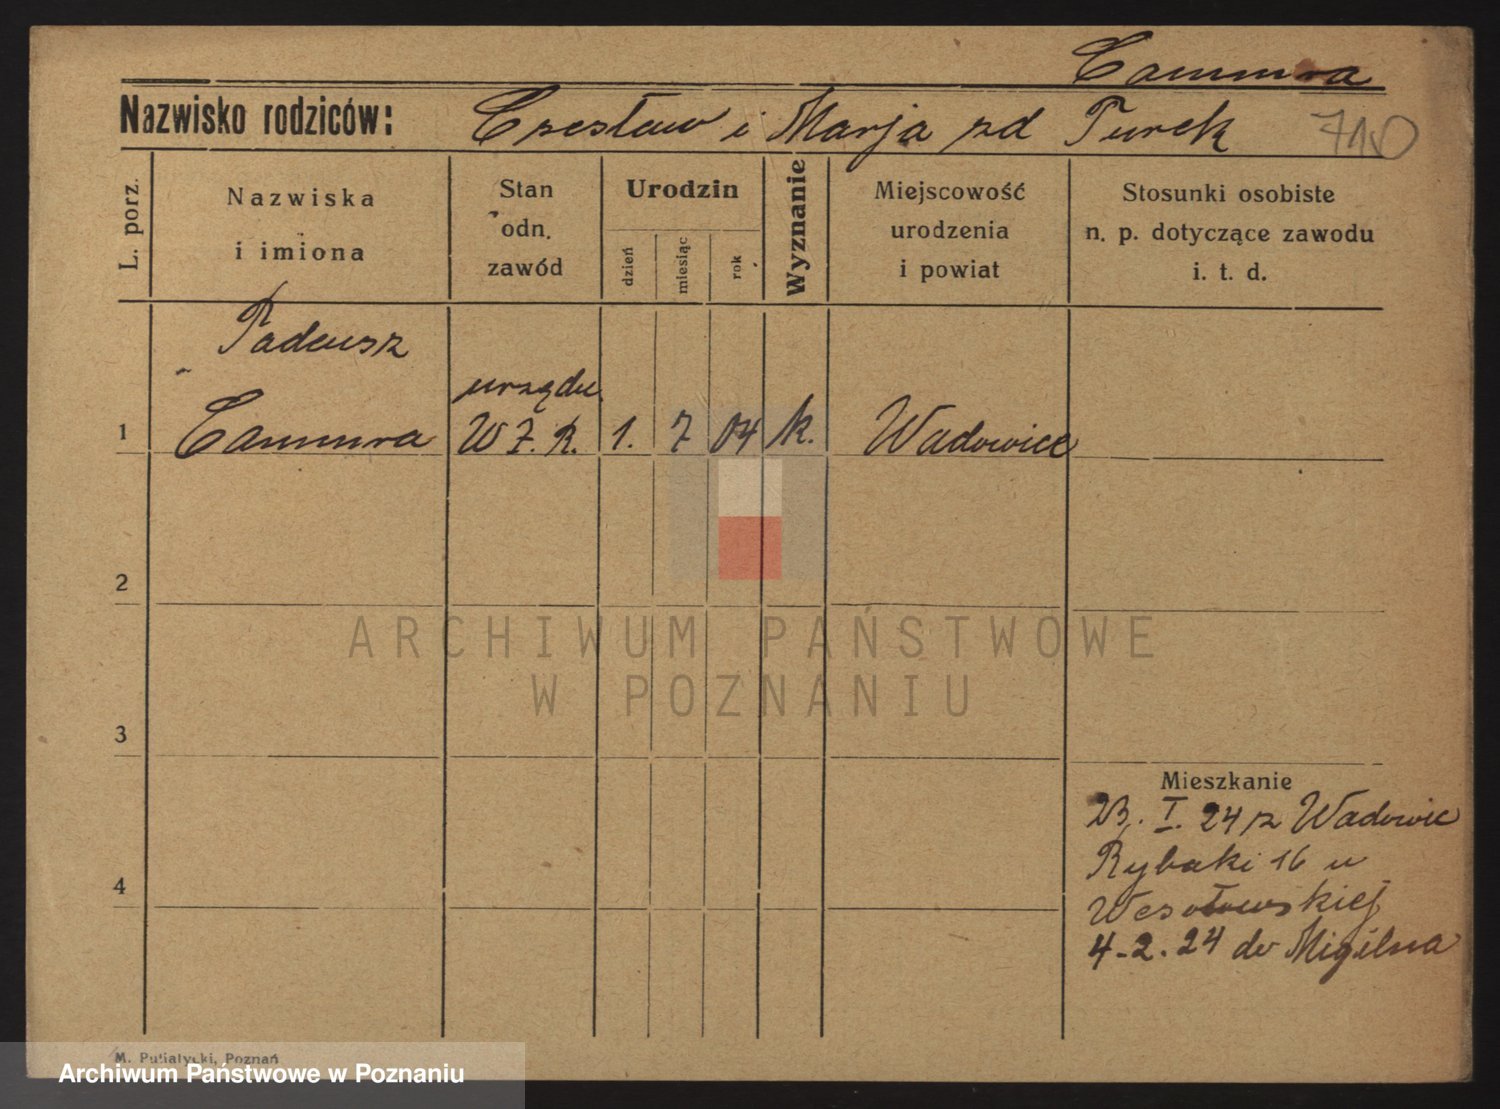 Cammra
Nazwisko rodziców: Czesław i Marja zd Turek 710
L. porz.
Nazwiska
i imiona
Stan
odn.
zawód
Urodzin
dzień
miesiąc
rok
Wyznanie
Miejscowość
urodzenia
i powiat
Stosunki osobiste
n. p. dotyczące zawodu
i. t. d.
Tadeusz
urzędu
1 Cammra W.Z.R. 1. 7 04 k. Wadowice
2
3
4
Mieszkanie
23. I. 24 z Wadowic
Rybaki 16 u
Wesołowskiej
4-2.24 do Mogilna
M. Putiatycki, Poznań
ARCHIWUM PAŃSTWOWE
W POZNANIU
Archiwum Państwowe w Poznaniu